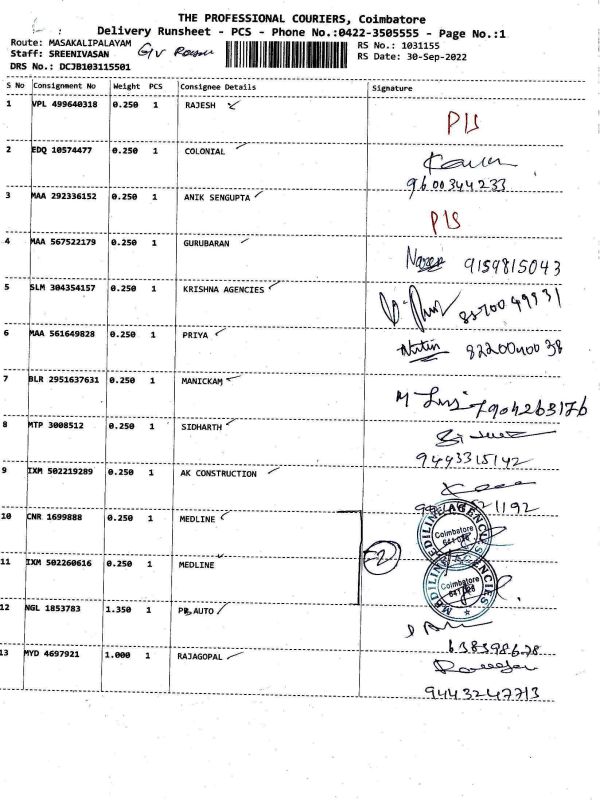 THE PROFESSIONAL COURIERS, Coimbatore
Delivery Runsheet - PCS - Phone No.:0422-3505555 - Page No.:1
Route: MASAKALIPALAYAM
RS No.: 1031155
Staff: SREENIVASAN G/V
RS Date: 30-Sep-2022
DRS No.: DCJB103115501
S No Consignment No Weight PCS Consignee Details Signature
1 VPL 499640318 0.250 1 RAJESH
PIS
2 EDQ 10574477 0.250 1 COLONIAL
9600344233
3 MAA 292336152 0.250 1 ANIK SENGUPTA
PIS
4 MAA 567522179 0.250 1 GURUBARAN
9159815043
5 SLM 304354157 0.250 1 KRISHNA AGENCIES
6 MAA 561649828 0.250 1 PRIYA
Nitin 8220040038
7 BLR 2951637631 0.250 1 MANICKAM
M 7904263176
8 MTP 3008512 0.250 1 SIDHARTH
9443315142
9 IXM 502219289 0.250 1 AK CONSTRUCTION
10 CNR 1699888 0.250 1 MEDLINE
MEDILINE AGENCIES
Coimbatore
2
11 IXM 502260616 0.250 1 MEDLINE
MEDILINE AGENCIES
Coimbatore
12 NGL 1853783 1.350 1 AUTO
13 MYD 4697921 1.000 1 RAJAGOPAL
9443247713